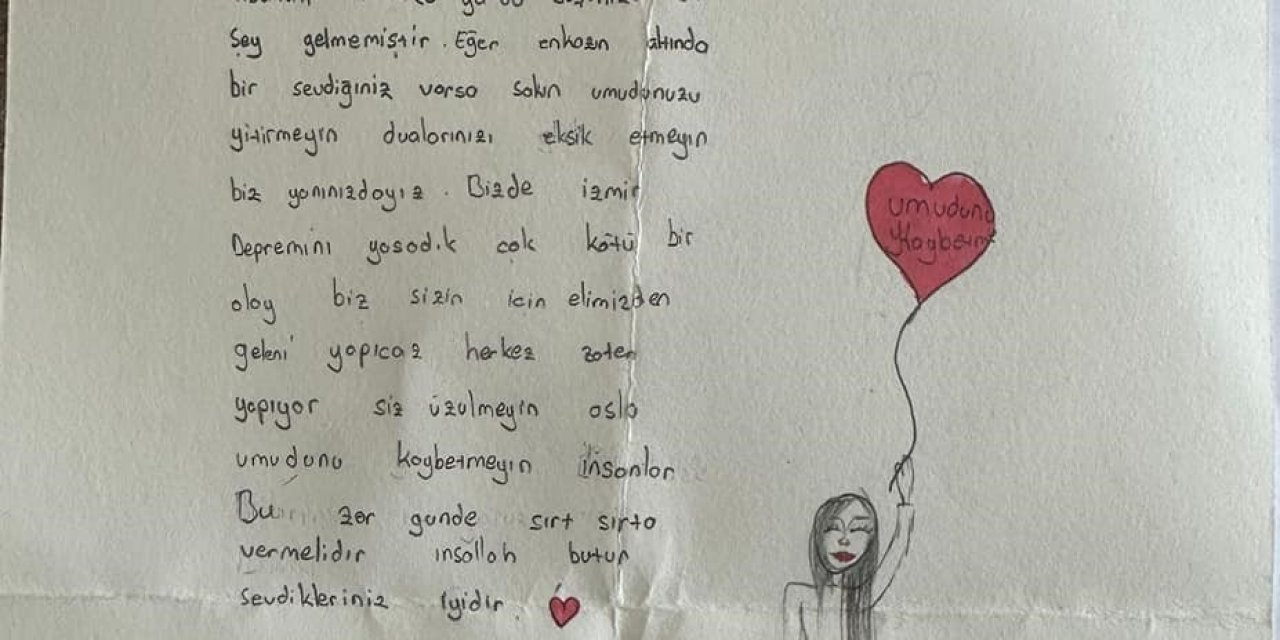 Şey gelmemiştir. Eğer enkazın altında
bir sevdiğiniz varsa sakın umudunuzu
yitirmeyin dualarınızı eksik etmeyin
biz yanınızdayız. Bizde izmir
Depremini yaşadık çok kötü bir
olay biz sizin için elimizden
geleni yapıcaz herkez zaten
yapıyor siz üzülmeyin asla
umudunu kaybetmeyin insanlar
Bu zor günde sırt sırta
vermelidir inşallah bütün
sevdikleriniz iyidir.
umudunu
Kaybetme